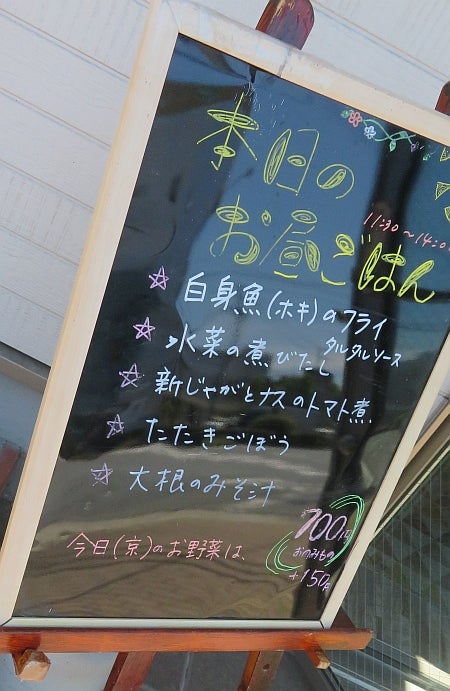 本日の
お昼ごはん
11:30～14:00
☆ 白身魚(ホキ)のフライ
タルタルソース
☆ 水菜の煮びたし
☆ 新じゃがとナスのトマト煮
☆ たたきごぼう
☆ 大根のみそ汁
700円
おのみもの
+150円
今日(京)のお野菜は、